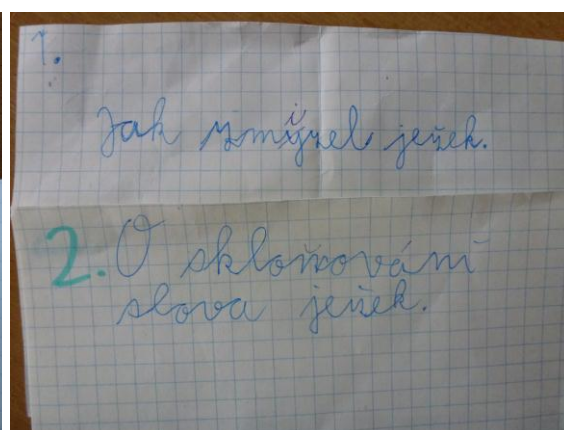 1.
Jak zmizel ježek.
2. O skloňování
slova ježek.